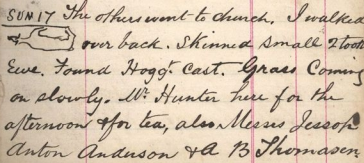 SUN 17 The others went to church. I walked
over back. Skinned small 2 tooth
Ewe. Found Hogg.t Cast. Grass Coming
on slowly. Mr. Hunter here for the
afternoon & for tea, also Messrs Jessop
Anton Anderson & A B Thomasen